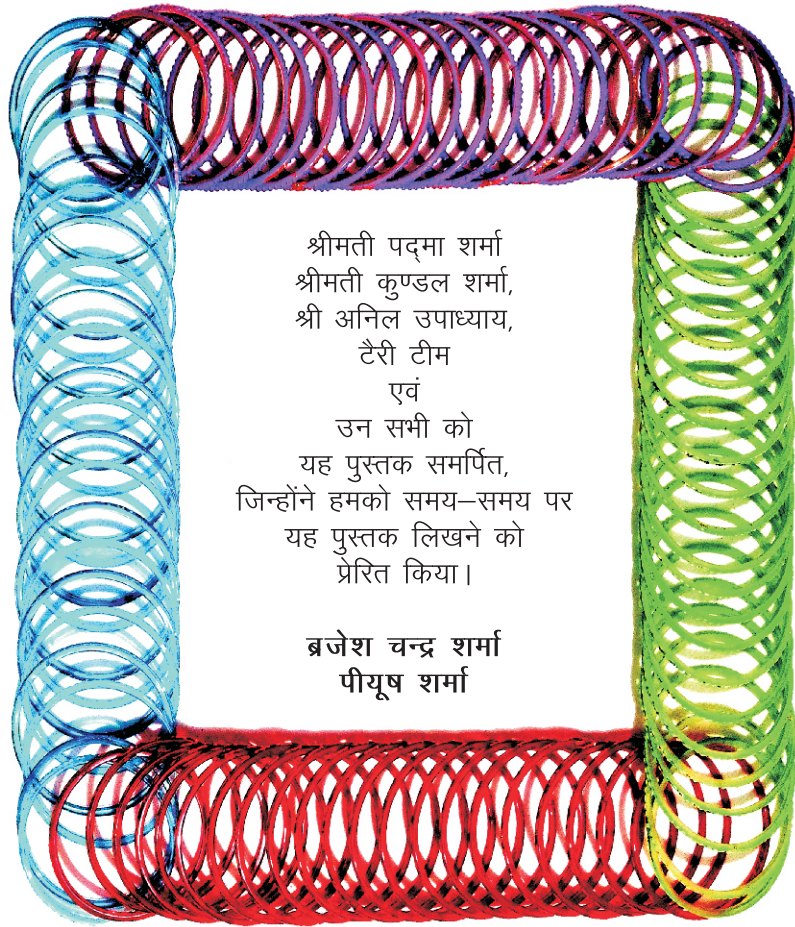 श्रीमती पद्‌मा शर्मा
श्रीमती कुण्डल शर्मा,
श्री अनिल उपाध्याय,
टैरी टीम
एवं
उन सभी को
यह पुस्तक समर्पित,
जिन्होंने हमको समय–समय पर
यह पुस्तक लिखने को
प्रेरित किया।
ब्रजेश चन्द्र शर्मा
पीयूष शर्मा